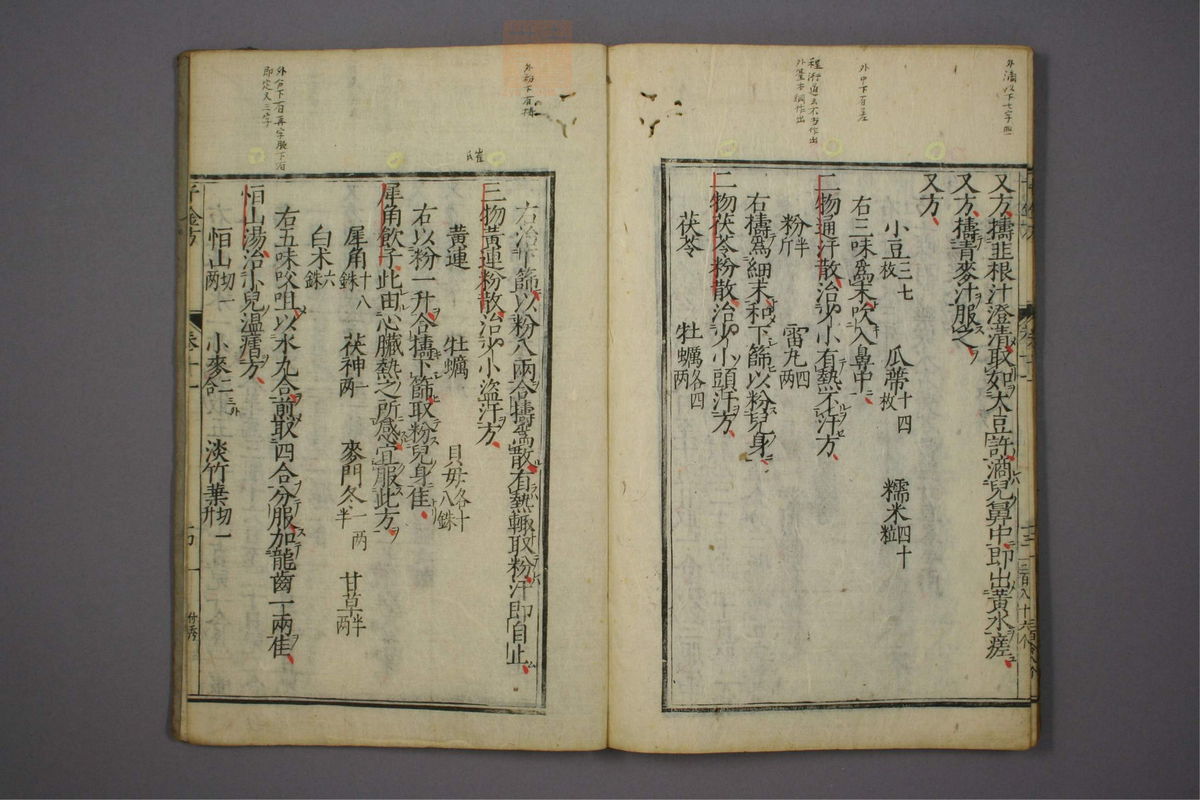 又方擣韭根汁澄清取如大豆許滴兒鼻中即出黃水瘥
又方擣青麥汁服之
又方
小豆三七枚 瓜蒂十四枚 糯米四十粒
右三味爲末吹入鼻中
二物通汗散治少小有熱不汗方
粉半斤 雷丸四兩
右擣爲細末和下篩以粉兒身
二物茯苓粉散治少小頭汗方
茯苓 牡蠣各四兩
右治下篩以粉八兩合擣爲散有熱輙取粉汗即自止
三物黃連粉散治少小盜汗方
黃連 牡蠣 貝母各十八銖
右以粉一升合擣下篩取粉兒身隹
犀角飲子此由心臟熱之所感宜服此方
犀角十八銖 茯神一兩 麥門冬一兩半 甘草半兩
白朮六銖
右五味㕮咀以水九合煎取四合分服加龍齒一兩隹
恒山湯治小兒溫瘧方
恒山切一兩 小麥三合 淡竹葉切一升
千金方
卷十一
崔氏